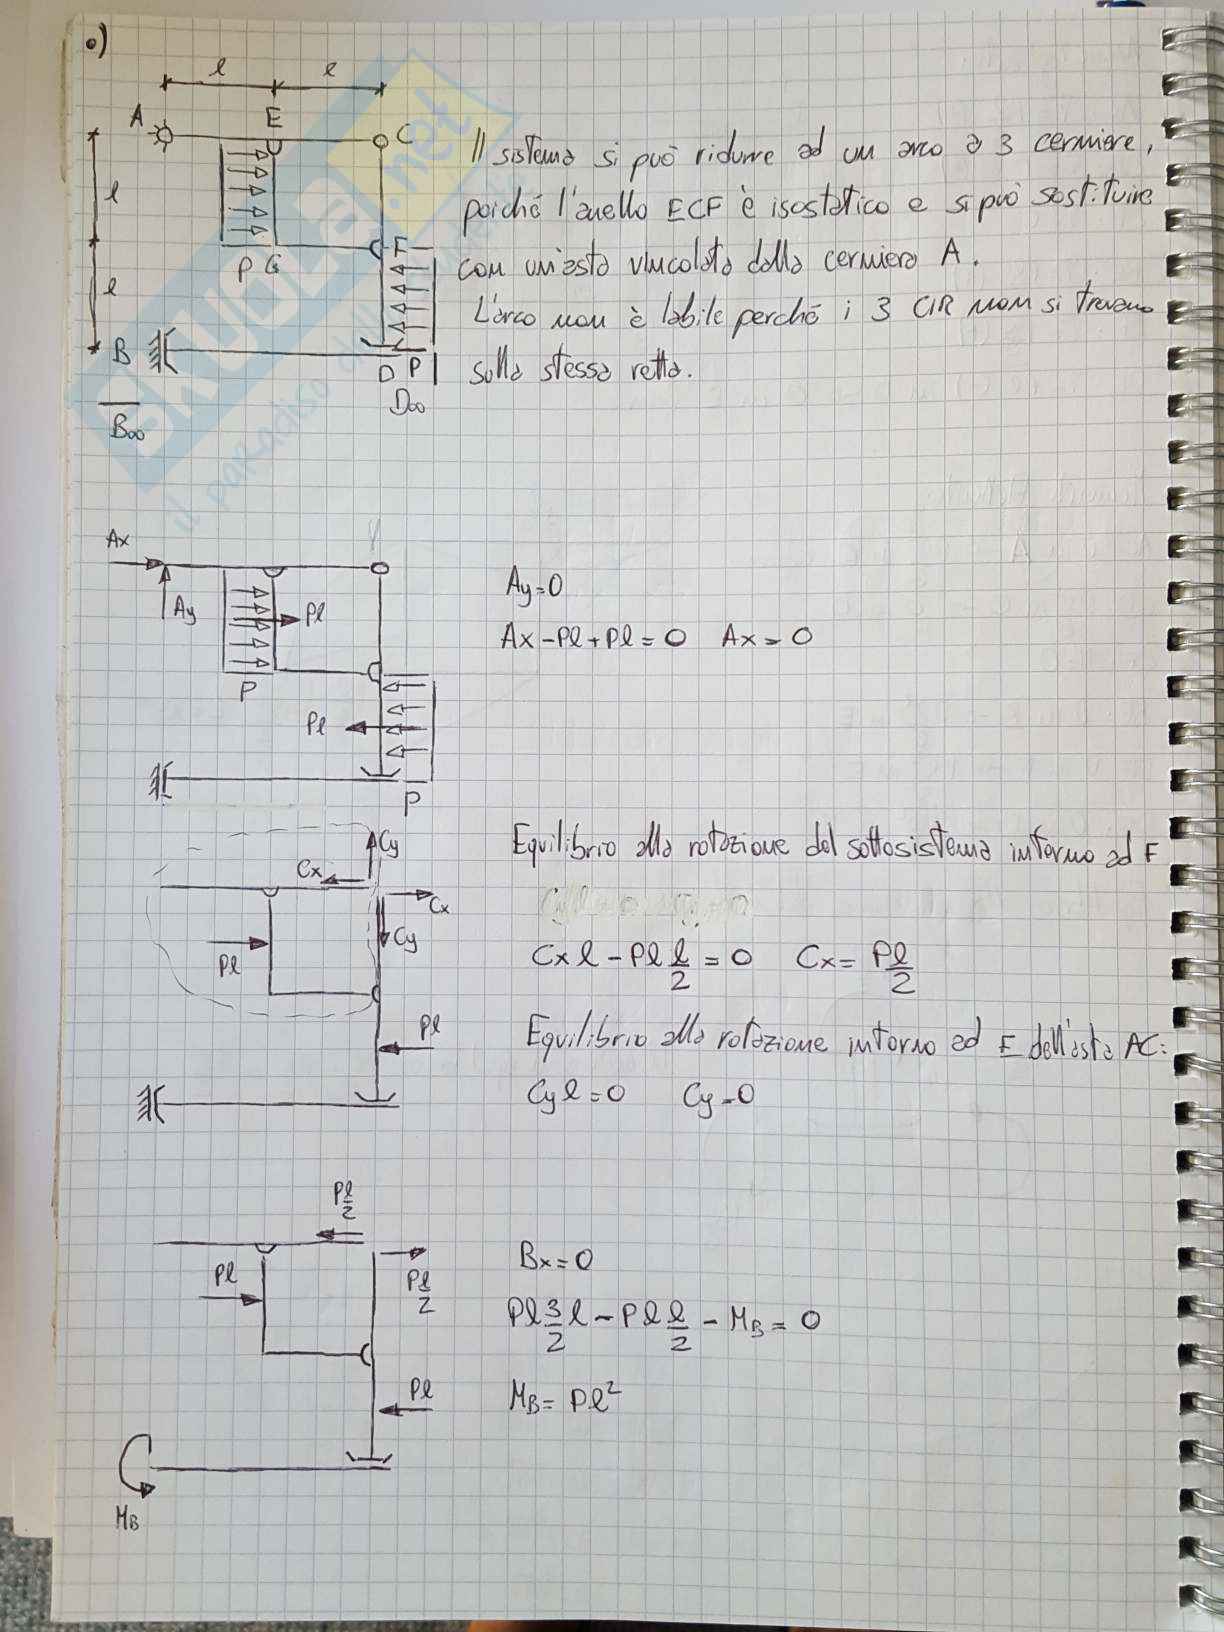 o)
l l
A E C
l
l
P G F
B D P
B∞ D∞
Il sistema si può ridurre ad un arco a 3 cerniere,
poiché l'anello ECF è isostatico e si può sostituire
con un'asta vincolata dalla cerniera A.
L'arco non è labile perché i 3 CIR non si trovano
sulla stessa retta.
SKUOLA.net
il paradiso dello studente
Ax
Ay Pl
P
Pl
P
Ay=0
Ax-Pl+Pl=0 Ax=0
Cy
Cx
Cx
Cy
Pl
Pl
Equilibrio alla rotazione del sottosistema intorno ad F
Cx l - Pl l/2 = 0 Cx = Pl/2
Equilibrio alla rotazione intorno ad E dell'asta AC:
Cy l = 0 Cy=0
Pl/2
Pl
Pl/2
Pl
MB
Bx=0
Pl 3/2 l - Pl l/2 - MB = 0
MB = Pl²